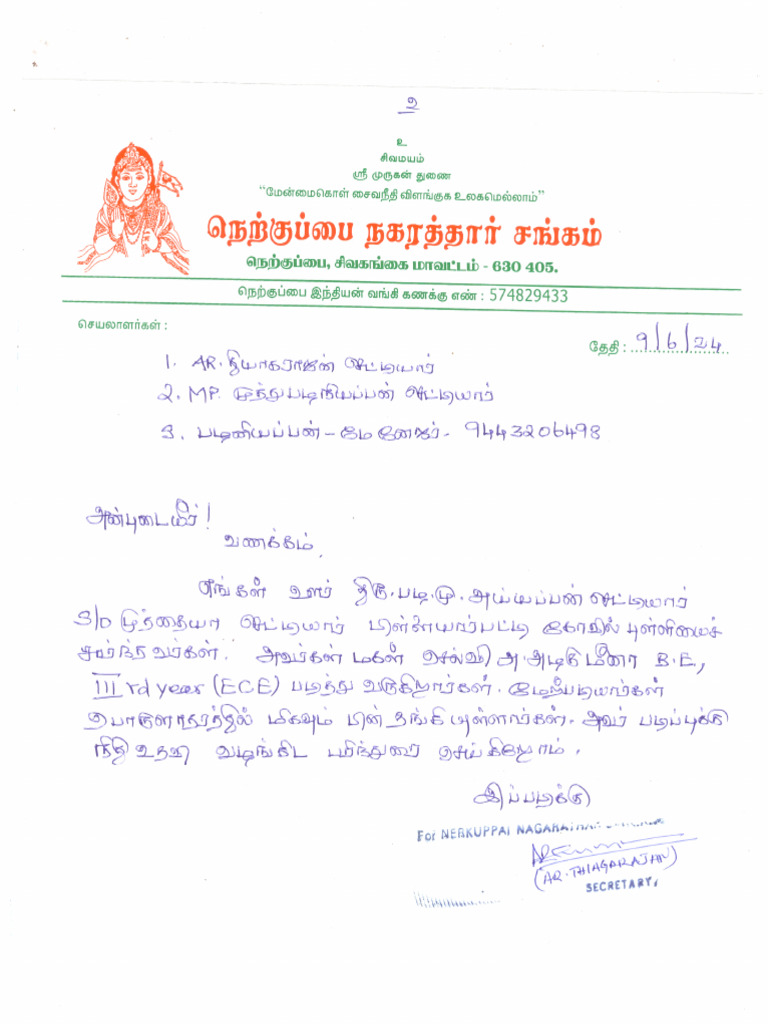 உ
உ
சிவமயம்
ஸ்ரீ முருகன் துணை
“மேன்மைகொள் சைவநீதி விளங்குக உலகமெல்லாம்”
நெற்குப்பை நகரத்தார் சங்கம்
நெற்குப்பை, சிவகங்கை மாவட்டம் - 630 405.
நெற்குப்பை இந்தியன் வங்கி கணக்கு எண் : 574829433
செயலாளர்கள் :
தேதி : 9/6/24
1. AR. தியாகராஜன் செட்டியார்
2. MP. முத்துபழநியப்பன் செட்டியார்
3. பழனியப்பன் - மேனேஜர் - 9443206498
அன்புடையீர்!
வணக்கம்.
எங்கள் ஊர் திரு. பழ. மு. அய்யப்பன் செட்டியார்
S/o முத்தையா செட்டியார் பிள்ளையார்பட்டி கோவில் புள்ளியைச்
சார்ந்தவர்கள். அவர்கள் மகள் செல்வி அ. அழகு மீனா B.E,
III rd year (ECE) படித்து வருகிறார்கள். மேற்படியார்கள்
பொருளாதாரத்தில் மிகவும் பின் தங்கி யுள்ளார்கள். அவர் படிப்புக்கு
நிதி உதவி வழங்கிட பரிந்துரை செய்கிறோம்.
இப்படிக்கு
For NERKUPPAI NAGARATHAR
(AR. THIAGARAJAN)
SECRETARY,